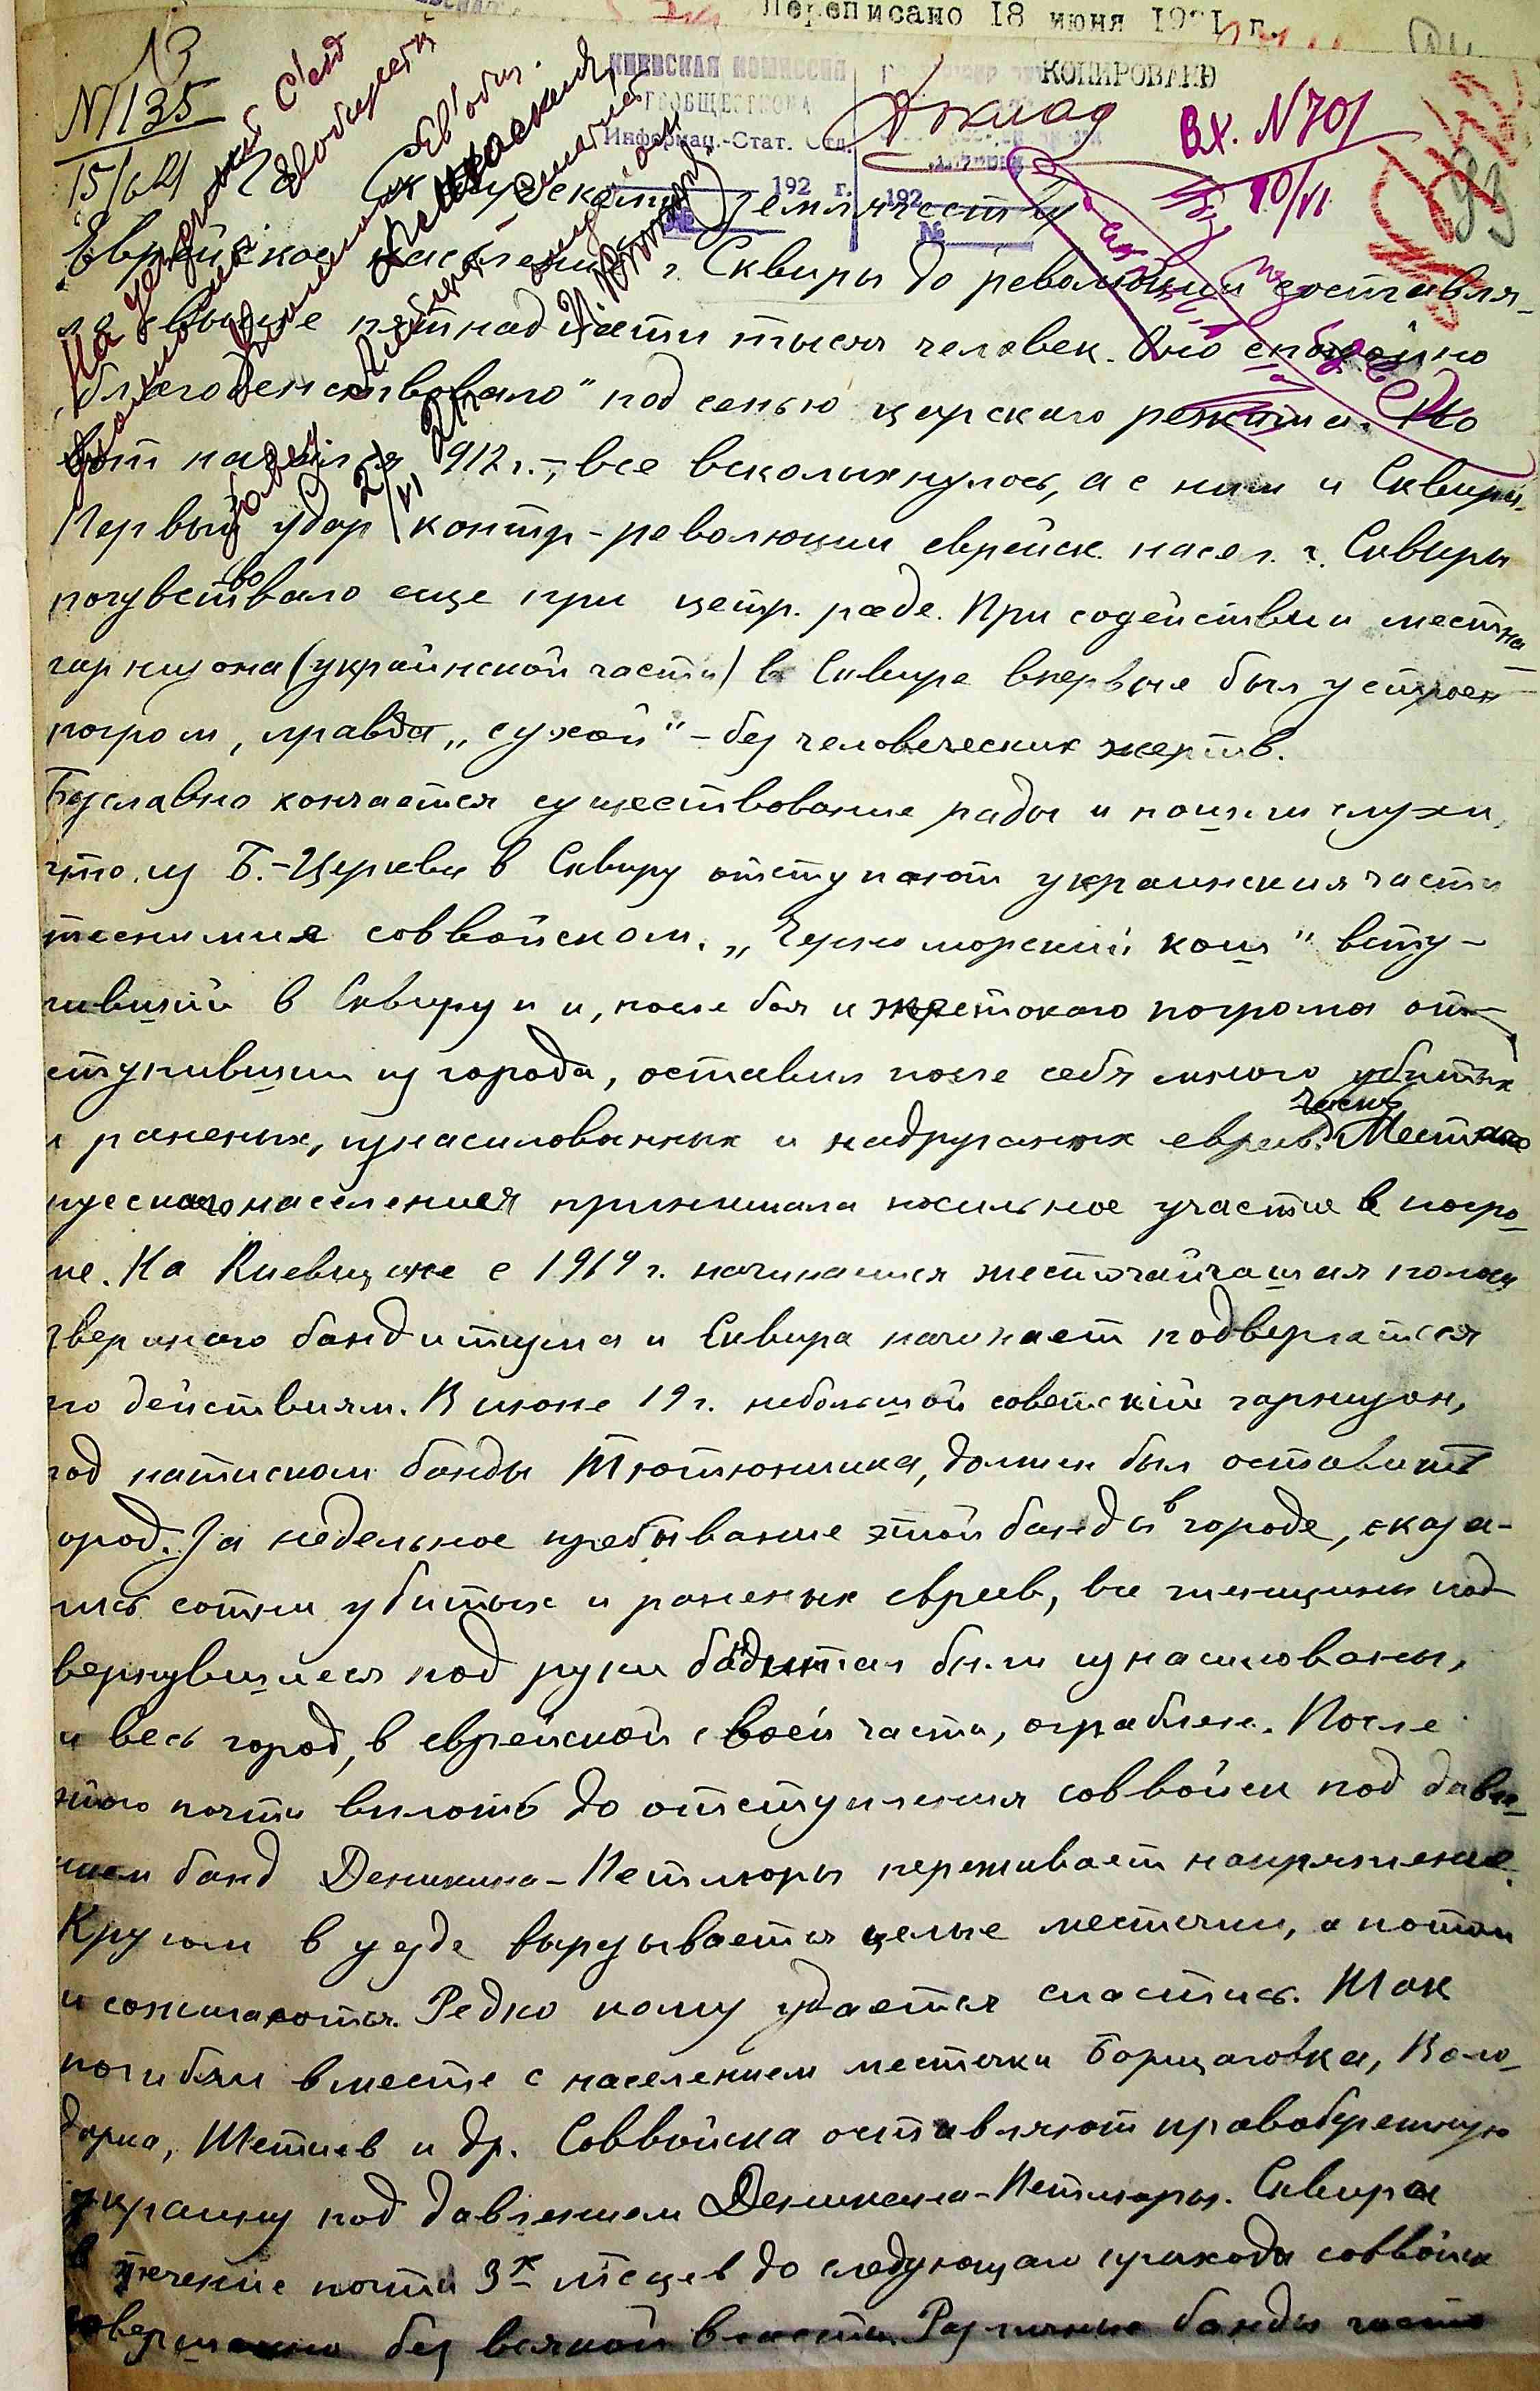 Переписано 18 июня 1921 г.
КОПИРОВАНО
КИЕВСКАЯ КОМИССИЯ
Информац.-Стат. Отд.
192 г.
192
№
№
13
N 1135
15/
Доклад
Вх. N 701
10/VI
Сквирскому Землячеству
Еврейское население г. Сквиры до революции составля-
ло свыше пятнадцати тысяч человек. Оно спокойно
„благоденствовало" под сенью царского режима. Но
вот начался 912 г.-, все всколыхнулось, а с ним и Сквира.
Первый удар контр-революции еврейск. насел. г. Сквиры
почувствовало еще при цетр. раде. При содействии местна-
гарнизона (украинской части) в Сквире впервые был устроен
погром, правда „сухой" - без человеческих жертв.
Бесславно кончается существование рады и пошли слухи,
что из Б.-Церкви в Сквиру отступают украинския части
теснимые соввойском. „Черноморский кош" всту-
пивший в Сквиру и и, после боя и жестокаго погрома от-
ступивший из города, оставил после себя много убитых
и раненых, изнасилованных и надруганых евреев. Часть Местнаго
русскаго населения принимала посильное участие в погро-
ме. На Киевщине с 1919 г. начинается жесточайчашая полоса
звериного бандитизма и Сквира начинает подвергаться
его действиям. В июне 19 г. небольшой советский гарнизон,
под натиском банды Тютюнника, должен был оставить
город. За недельное пребывание этой банды в городе, оказа-
лись сотни убитых и раненых евреев, все женщины под-
вернувшиеся под руки бандитам были изнасилованы,
и весь город, в еврейской своей части, ограблен. После
этого почти вплоть до отступления соввойск под давле-
нием банд Деникина-Петлюры переживает напряжение.
Кругом в уезде вырезывается целые местечки, а потом
и сожигаются. Редко кому удается спастись. Так
погибли вместе с населением местечки Борщаговка, Воло-
дарка, Тетиев и др. Соввойска оставляют правобережную
украину под давлением Деникина-Петлюры. Сквира
в течение почти 3х месяцев до следующаго прихода совойск
совершенно без всякой власти. Различные банды часто